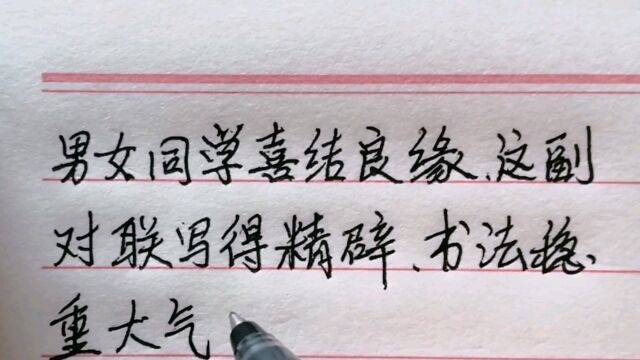 男女同学喜结良缘、这副
对联写得精辟、书法稳
重大气